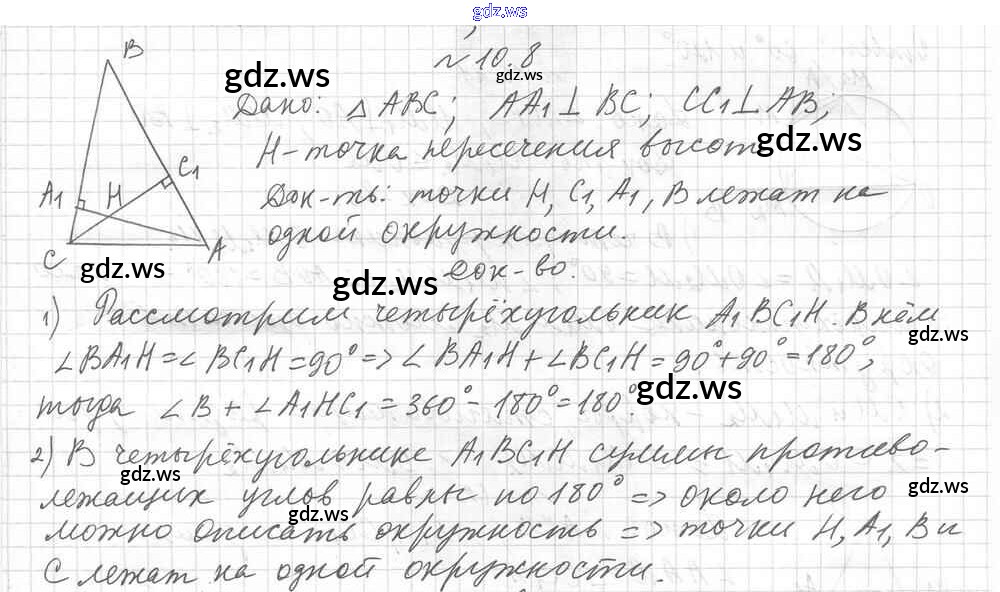 gdz.ws
№ 10.8
gdz.ws
gdz.ws
Дано: △ ABC; AA1 ⊥ BC; CC1 ⊥ AB;
H - точка пересечения высот
gdz.ws
Док-ть: точки H, C1, A1, B лежат на
одной окружности.
B
C1
A1
H
C
A
gdz.ws
Док-во:
gdz.ws
1) Рассмотрим четырёхугольник A1BC1H. В нём
gdz.ws
∠BA1H = ∠BC1H = 90° => ∠BA1H + ∠BC1H = 90° + 90° = 180°,
тогда ∠B + ∠A1HC1 = 360° - 180° = 180°.
gdz.ws
2) В четырёхугольнике A1BC1H суммы противо-
gdz.ws
лежащих углов равны по 180° => около него
gdz.ws
gdz.ws
можно описать окружность => точки H, A1, B и
C лежат на одной окружности.